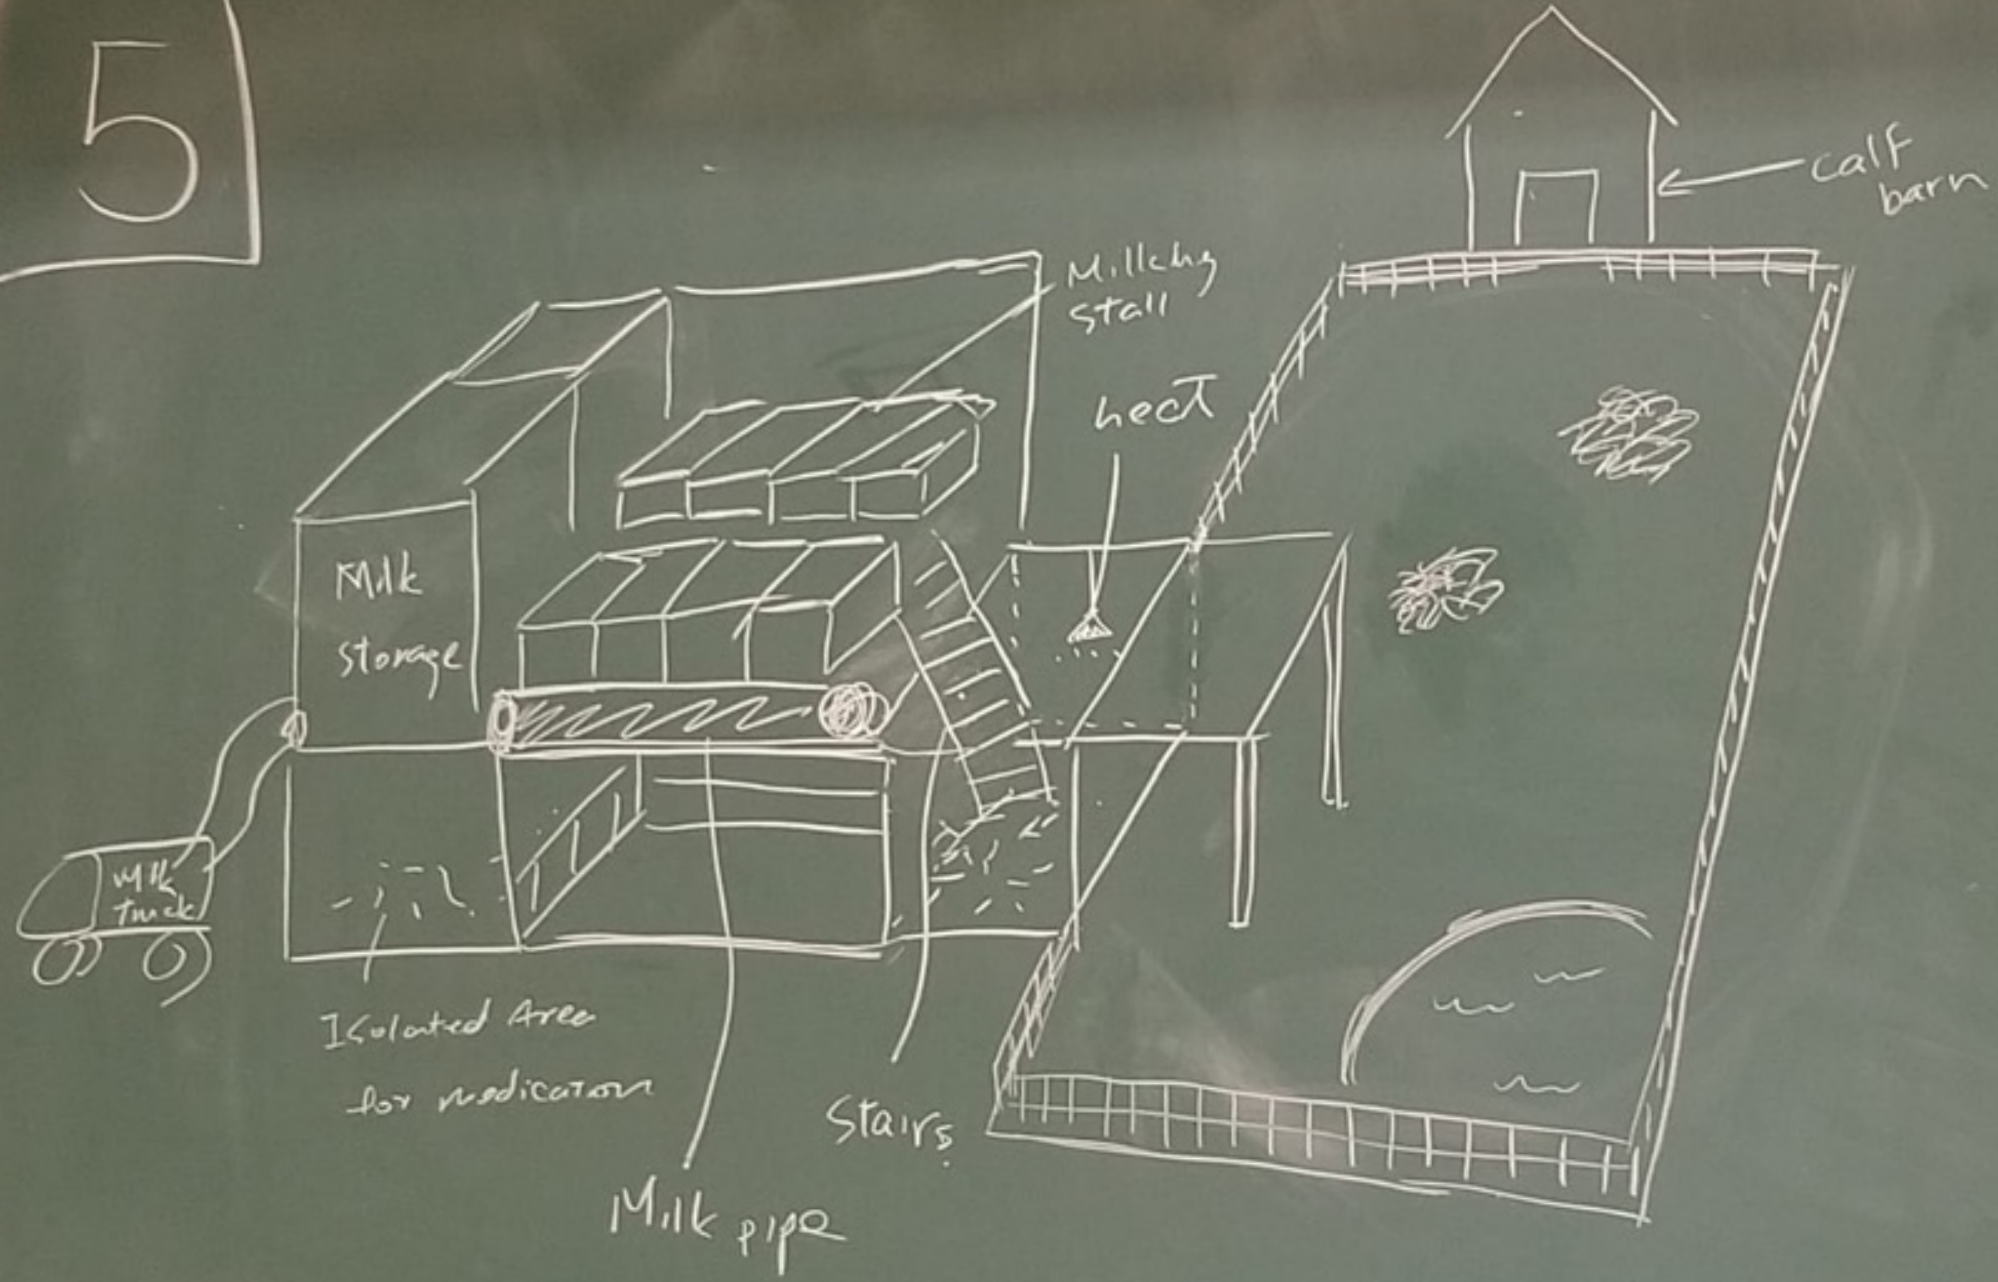 5
calf
barn
Milking
Stall
heat
Milk
Storage
Milk
truck
Isolated Area
for medication
Stairs
Milk pipe